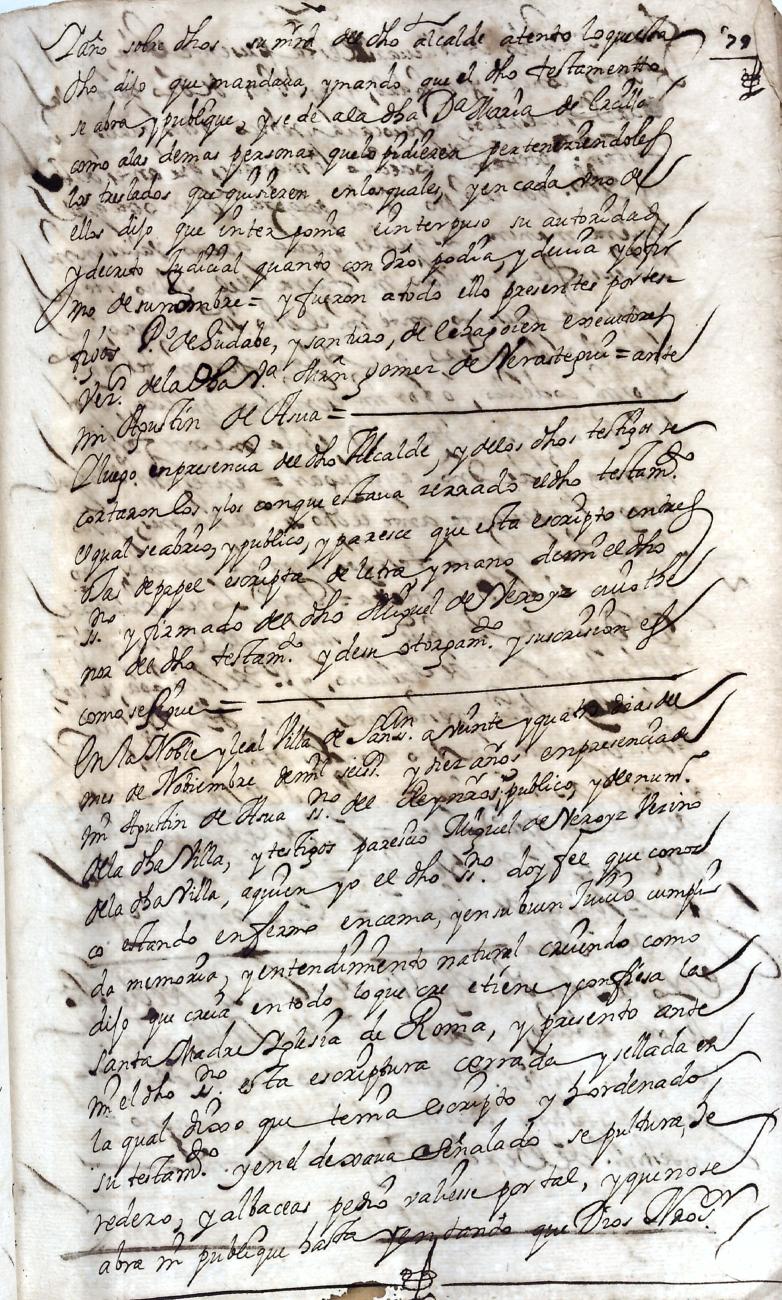 79
sobre dhos su mrd del dho alcalde atento lo questa
dho dijo que mandava, y mando que el dho testamentto
se abra, y publique, y se de a la dha Da Maria de
como a las demas personas que lo pidieren perteneziendoles
los treslados que quisieren en los quales, y en cada uno de
ellos dijo que interponia e interpuso su autoridad
y decreto Judicial quanto con dro podia, y devia y lo fir
mo de su nombre = y fueron a todo ello presentes por tes
tigos Po de y santuro, de
vezs de la dha Va gomez de = ante
mi Agustin de Asua =
E luego en presencia del dho Alcalde, y de los dhos testigos se
cortaron los ylos con que estava zerrado el dho testamdo
el qual se abrio, y publico, y paresce que esta escripto en tres
ojas de papel escripta de letra y mano de mi el dho
sno y firmado del dho Miguel de cuio the
nor del dho testamdo y de su otorgamdo y suscricion es
como se sigue =
En la Noble y leal Villa de a veinte y quatro dias del
mes de Nobiembre de mil seiss. y diez años en presencia de
mi Agustin de Asua sno del Rey nro sr, publico, y del num.
de la dha Villa, y testigos parescio Miguel de vezino
de la dha Villa, a quien yo el dho sno doy fee que conoz
co estando enfermo en cama, y en su buen Juicio cumpli
da memoria, y entendimiento natural creiendo como
dijo que creia en todo lo que cre e tiene y confiesa la
santa Madre Iglesia de Roma, y presento ante
mi el dho sno esta escriptura cerrada y sellada en
la qual dixo que tenia escripto y hordenado
su testamdo y en el dexava señalado sepultura, he
redero, y albaceas pedio valiesse por tal, y que no se
abra ni publique hasta tanto que Dios Nro Sr